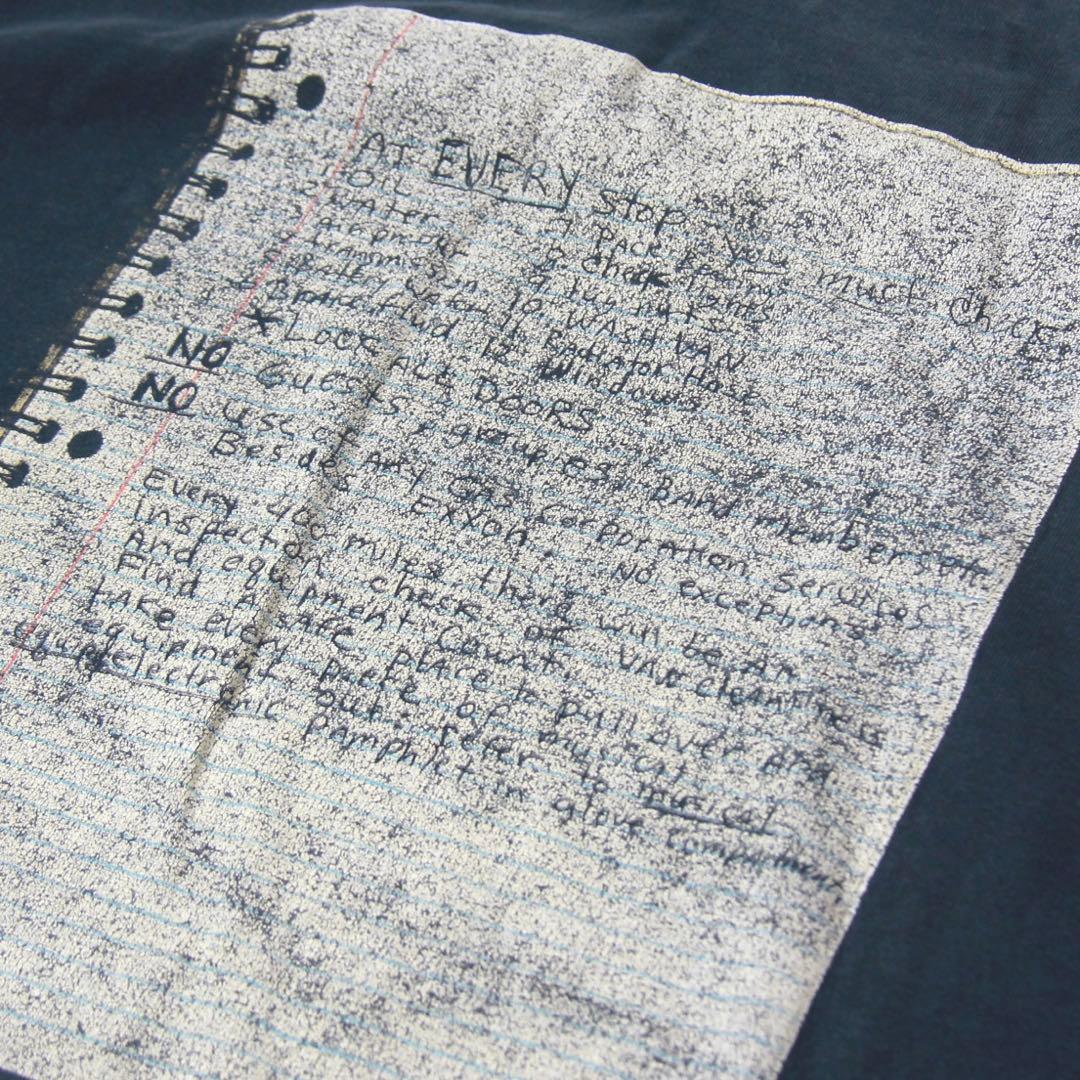 AT EVERY stop you must check
OIL
WATER
check lights
WASH VAN
Radiator Hose
Windows
X LOCK ALL DOORS
NO Guests, groupies, BAND members
NO use of ANY GAS corporation services
Besides Exxon. NO exceptions
Every 400 miles there will be AN
inspection check of VAN cleanliness
And equipment count.
Find A safe place to pull over And
take every piece of musical
equipment out. refer to musical
electronic PAMphlet in glove compartment